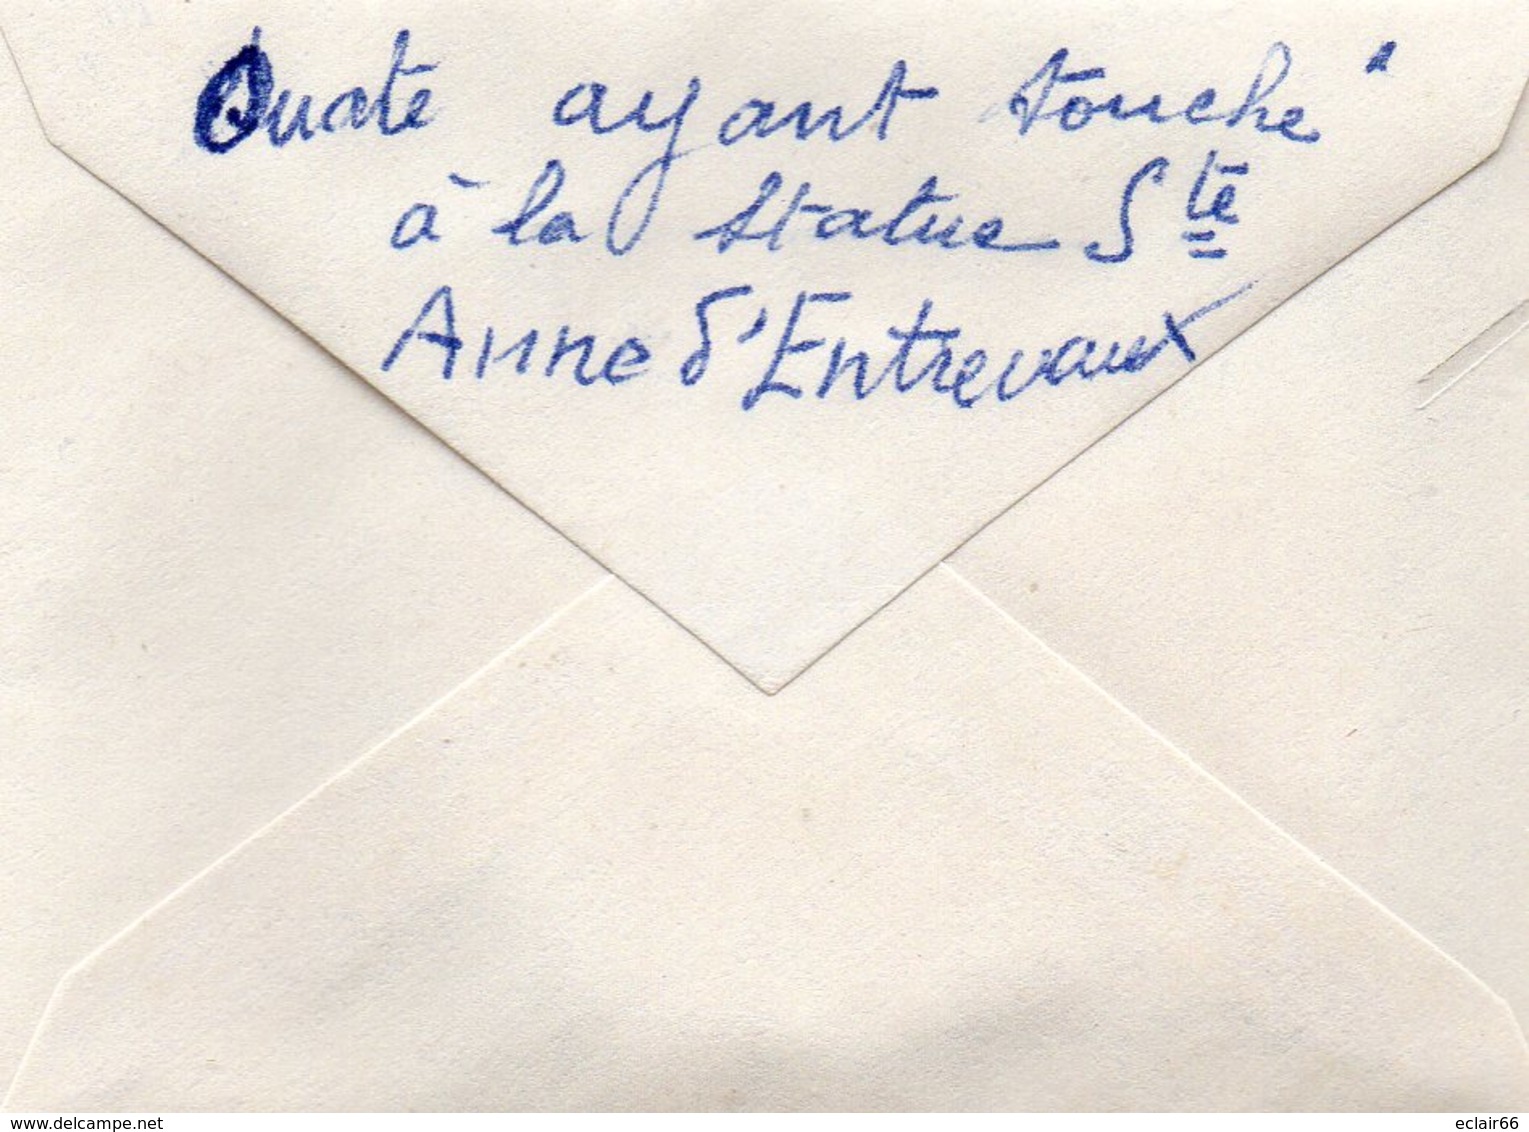 Ouate ayant touché
à la statue Ste
Anne d'Entrevaux
delcampe.net
eclair66